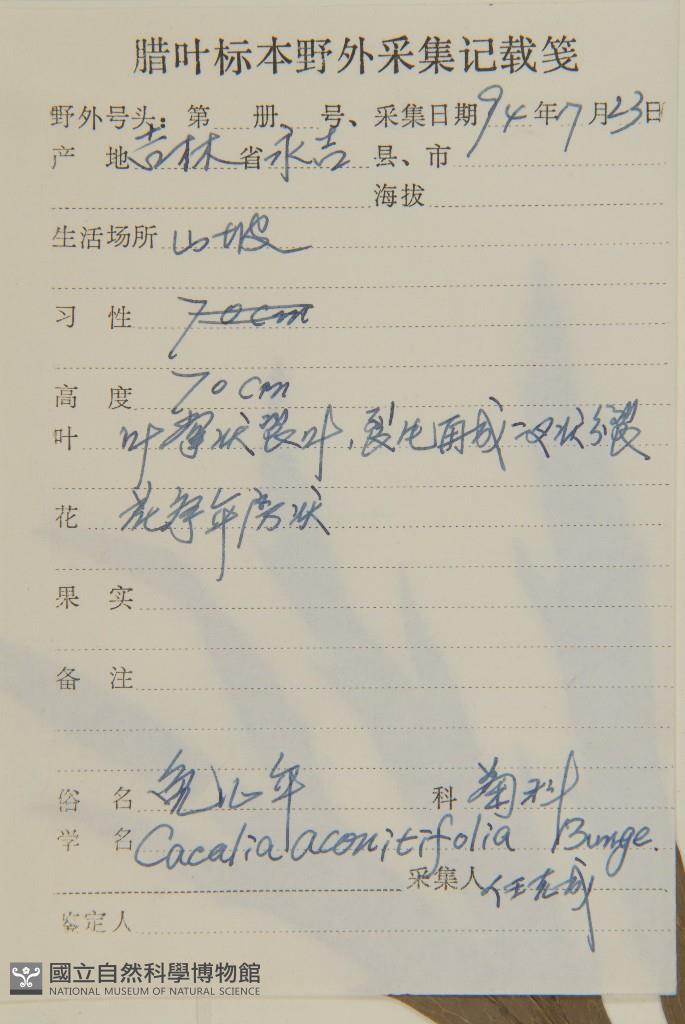 腊叶标本野外采集记载笺
野外号头：第 册 号、采集日期 94 年 7 月 23 日
产 地 吉林 省 永吉 县、市
海拔
生活场所 山坡
习 性 70cm
高 度 70cm
叶 叶掌状裂叶，裂片再成二叉状分裂
花 花序伞房状
果 实
备 注
俗 名 兔儿伞 科 菊科
学 名 Cacalia aconitifolia Bunge.
采集人
鉴定人
國立自然科學博物館
NATIONAL MUSEUM OF NATURAL SCIENCE